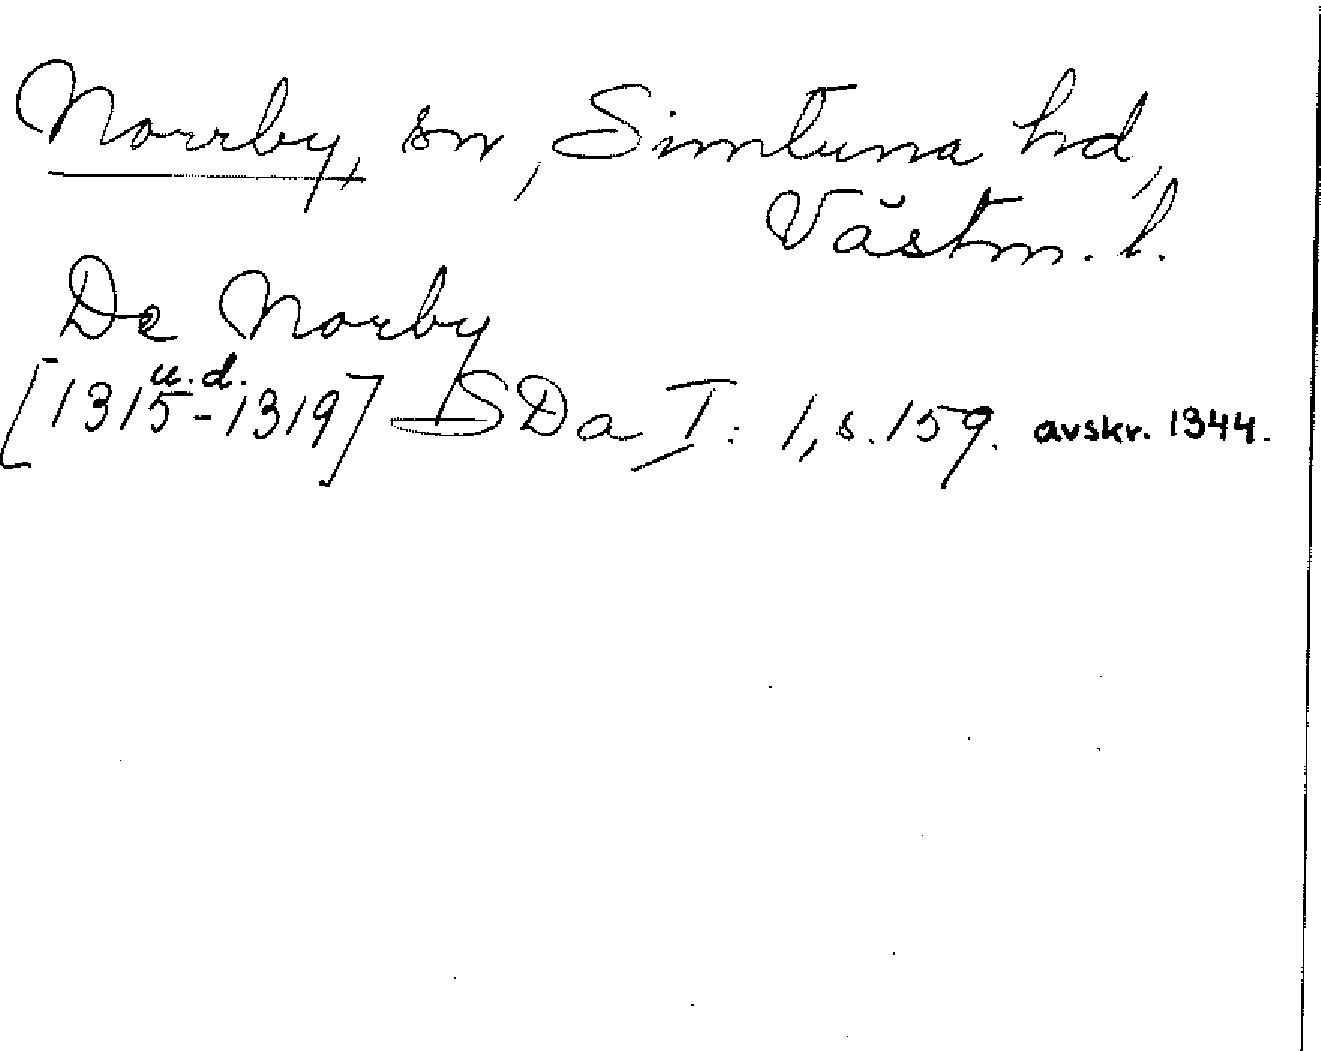 Norrby, sn, Simtuna hd,
Västm. l.
De Norby
u. d.
[1315-1319] SDa I: 1, s. 159. avskr. 1344.